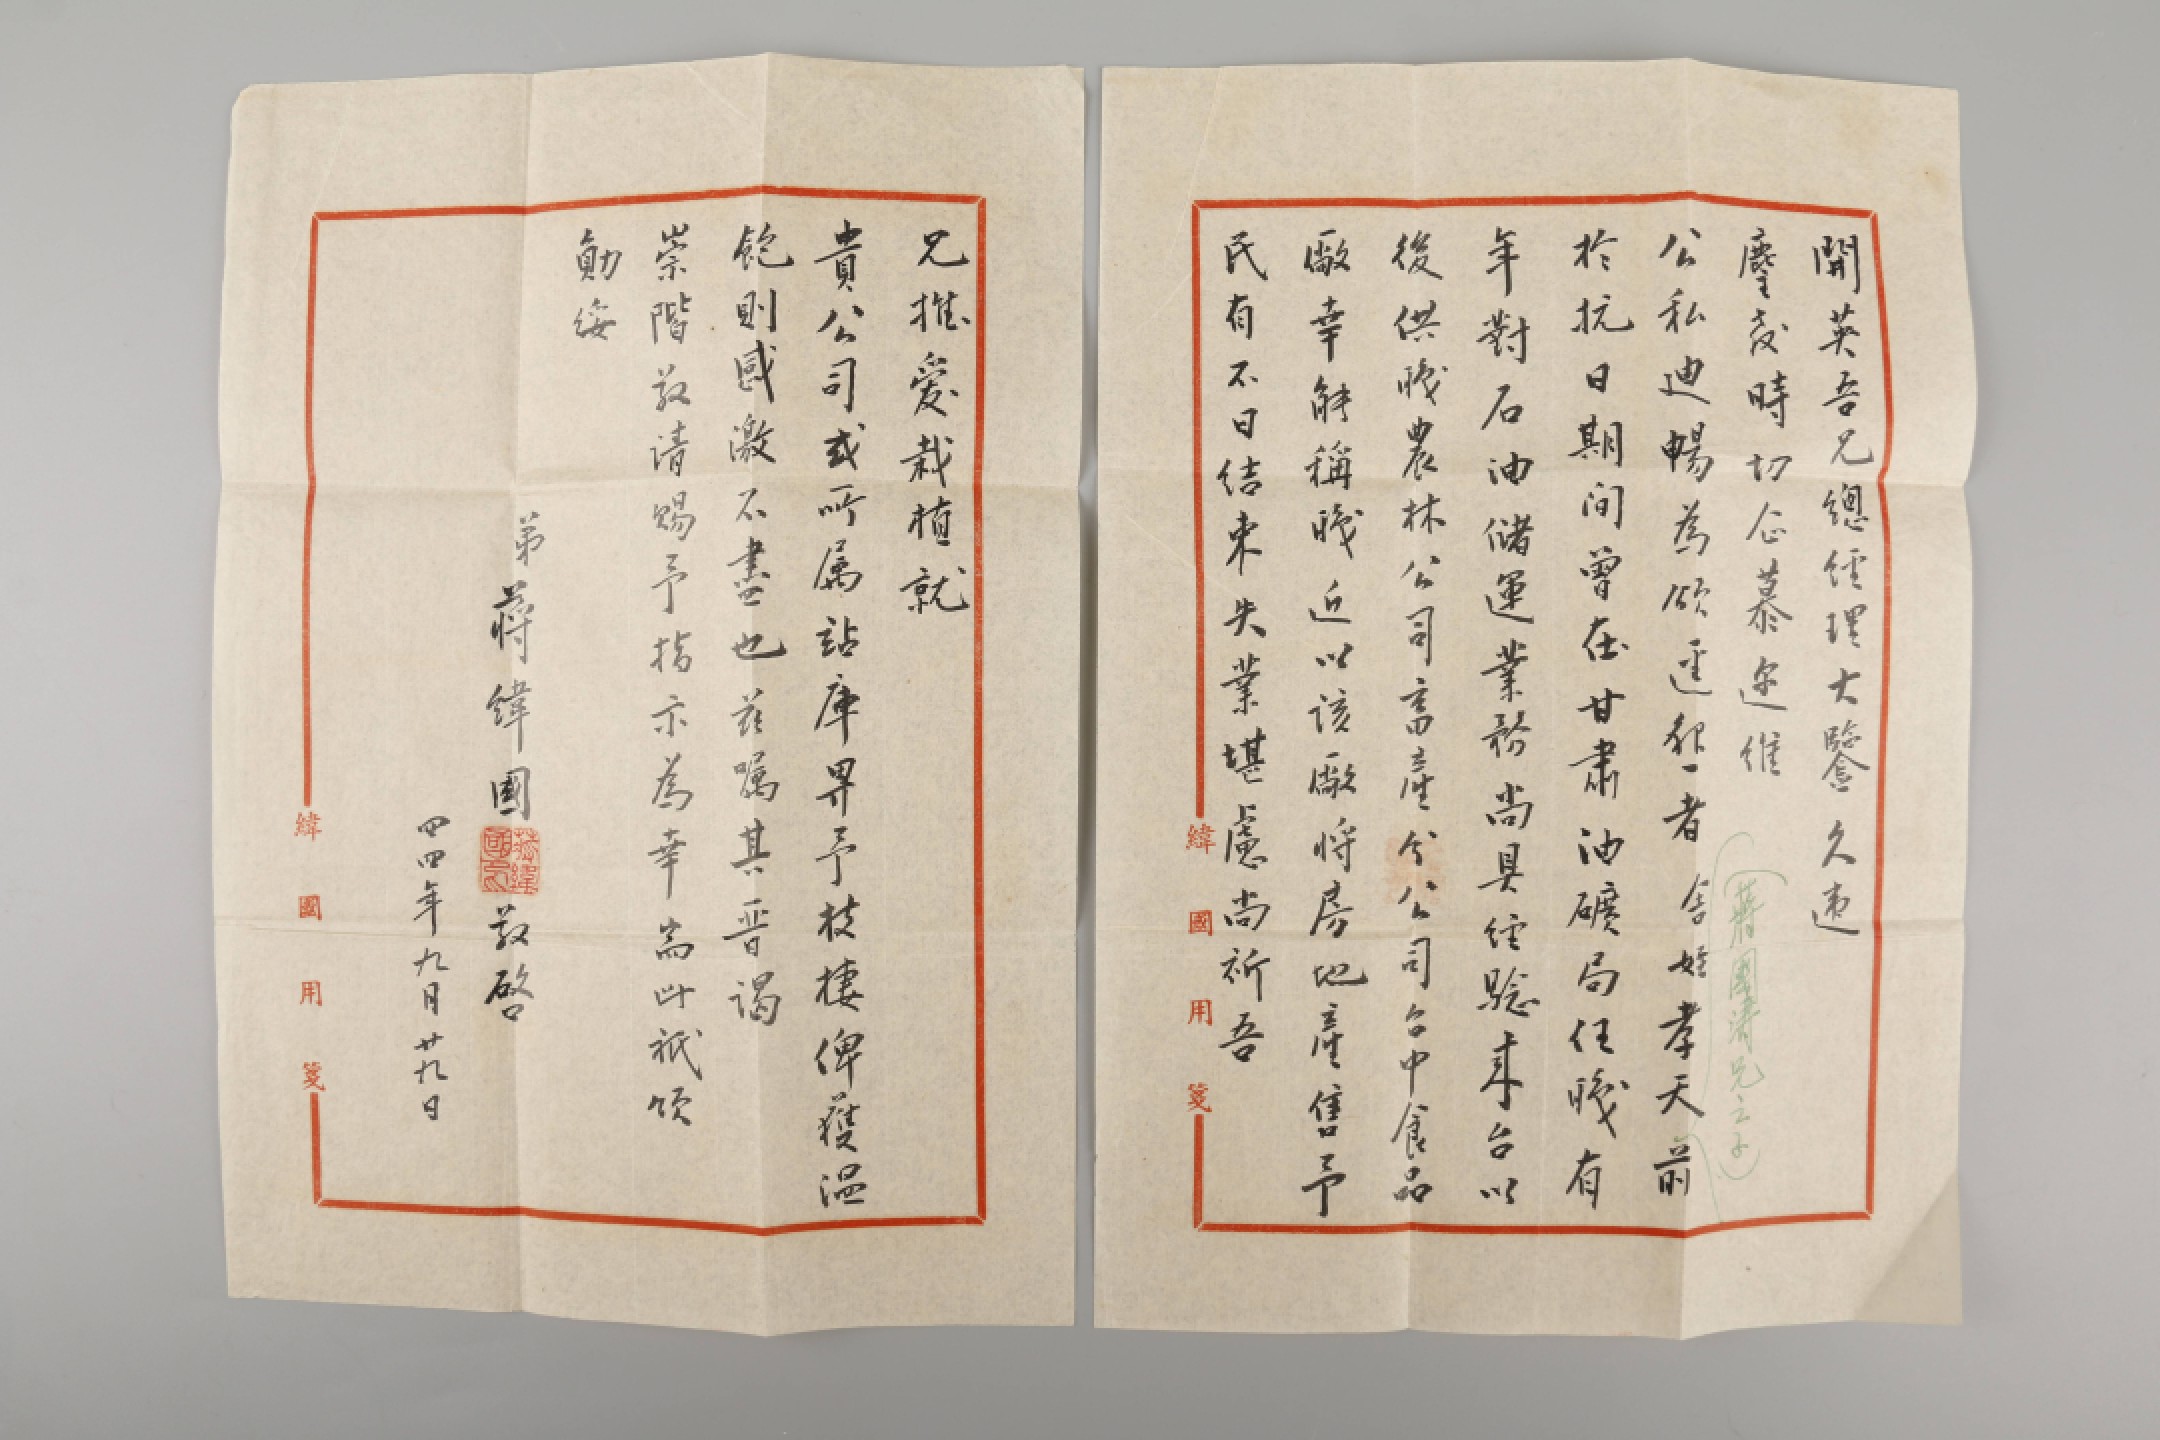 開英吾兄總經理大鑒久違
麈教時切企慕邇維
公私迪暢為頌逕懇者舍姪孝天前
於抗日期间曾在甘肅油礦局任職有
年對石油儲運業務尚具經驗来台以
後供職農林公司畜產分公司台中食品
廠幸能稱職近以該廠將房地產售予
民有不日结束失業堪慮尚祈吾
(蔣國濤兄之子)
緯國用箋
兄推爱栽植就
貴公司或所属站庫畀予枝棲俾獲温
飽則感激不盡也茲嘱其晋謁
崇階敬请賜予指示為幸耑此祇頌
勛绥
弟蔣緯國敬啓
蔣緯國印
四四年九月廿九日
緯國用箋